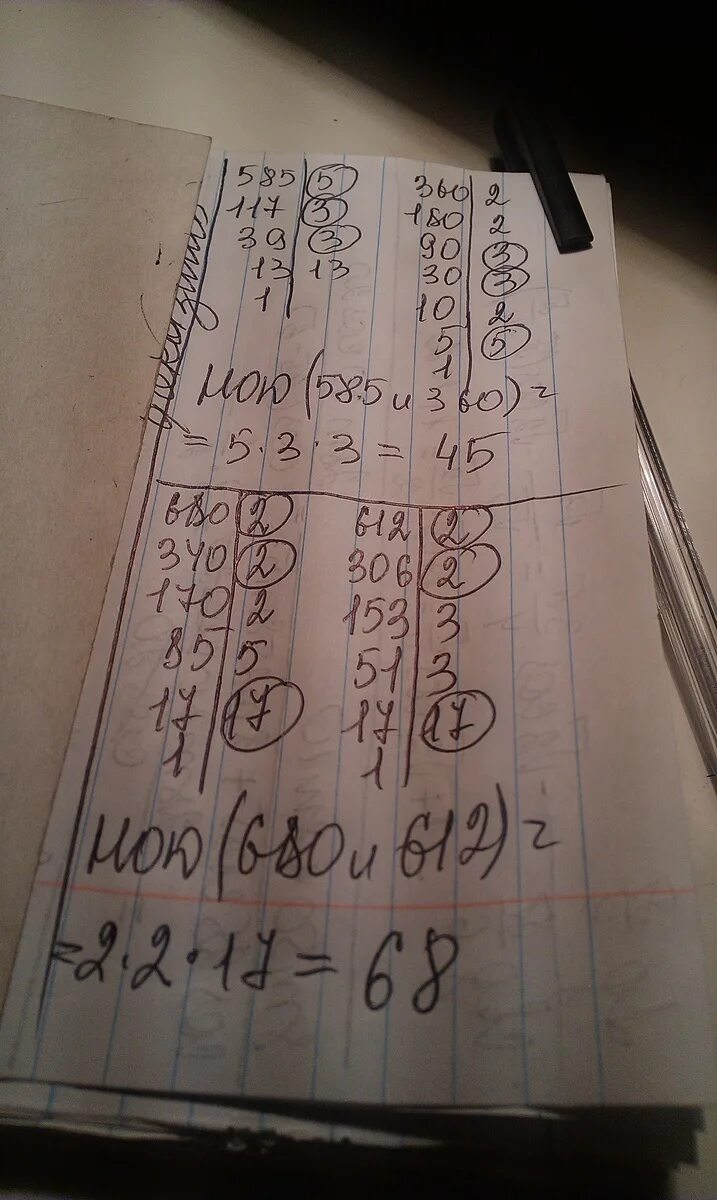 585 | 5
117 | 3
39 | 3
13 | 13
1
360 | 2
180 | 2
90 | 3
30 | 3
10 | 2
5 | 5
1
НОД (585 и 360) =
= 5 · 3 · 3 = 45
680 | 2
340 | 2
170 | 2
85 | 5
17 | 17
1
612 | 2
306 | 2
153 | 3
51 | 3
17 | 17
1
НОД (680 и 612) =
= 2 · 2 · 17 = 68